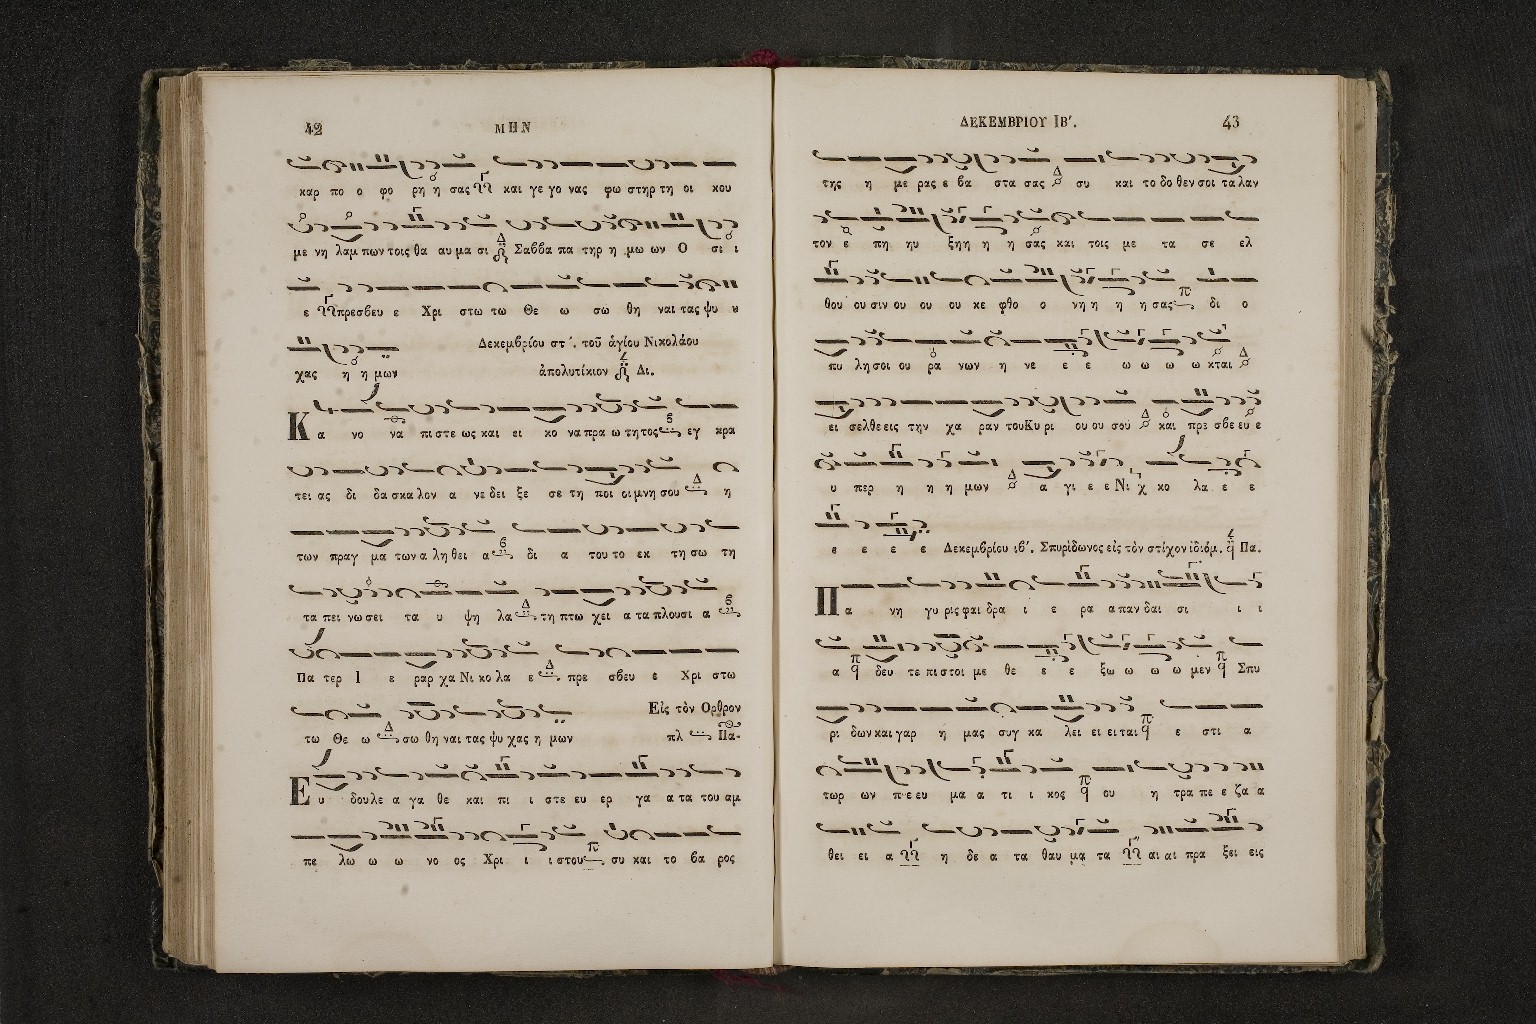 42
ΜΗΝ
καρ πο ο φο ρη η σας και γε γο νας φω στηρ τη οι κου
με νη λαμ πων τοις θα αυ μα σι Σαββα πα τηρ η μω ων Ο σι ι
ε πρεσβευ ε Χρι στω τω Θε ω σω θη ναι τας ψυ υ
χας η η μων
Δεκεμβρίου στ΄. τοῦ ἁγίου Νικολάου
ἀπολυτίκιον Δι.
Κα νο να πι στε ως και ει κο να πρα ω τη τος εγ κρα
τει ας δι δα σκα λον α νε δει ξε σε τη ποι οι μνη σου η
των πραγ μα των α λη θει α δι α του το εκ τη σω τη
τα πει νω σει τα υ ψη λα τη πτω χει α τα πλουσι α
Πα τερ Ι ε ραρ χα Νι κο λα ε πρε σβευ ε Χρι στω
τω Θε ω σω θη ναι τας ψυ χας η μων
Εἰς τὸν Ορθρον
πλ Πα-
Ευ δου λε α γα θε και πι ι στε ευ ερ γα α τα του αμ
πε λω ω ω νο ος Χρι ι ι στου συ και το βα ρος
ΔΕΚΕΜΒΡΙΟΥ ΙΒ΄.
43
της η με ρας ε βα στα σας συ και το δο θεν σοι τα λαν
τον ε πη ηυ ξηη η η σας και τοις με τα σε ελ
θου ου σιν ου ου ου κε φθο ο νη η η η σας δι ο
πυ λη σοι ου ρα νων η νε ε ε ω ω ω ω κται
ει σελθε εις την χα ραν του Κυ ρι ου ου σού και πρε σβε ευ ε
υ περ η η η μων α γι ε ε Νι χ κο λα ε ε
ε ε ε ε Δεκεμβρίου ιβ΄. Σπυρίδωνος εἰς τὸν στίχον ἰδιόμ. Πα.
Πα νη γυ ρις φαι δρα ι ε ρα α παν δαι σι ι ι
α δευ τε πι στοι με θε ε ε ξω ω ω ω μεν Σπυ
ρι δων και γαρ η μας συγ κα λει ει ει ται ε στι α
τωρ ων πε ευ μα α τι ι κος ου η τρα πε ε ζα α
θει ει α η δε α τα θαυ μα τα αι αι πρα ξει εις